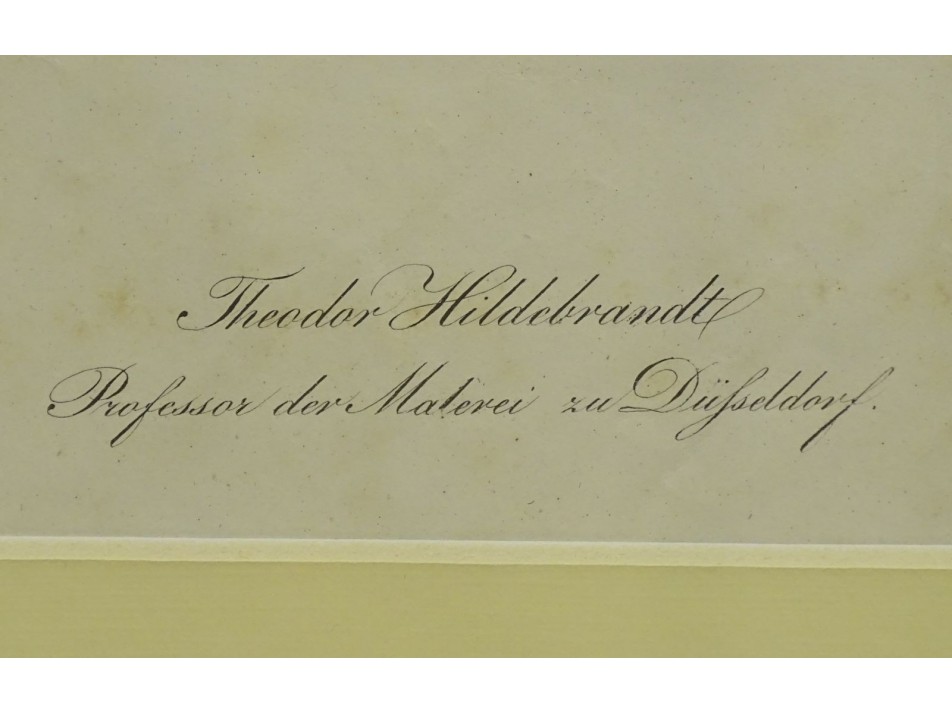 Theodor Hildebrandt
Professor der Malerei zu Düſseldorf.